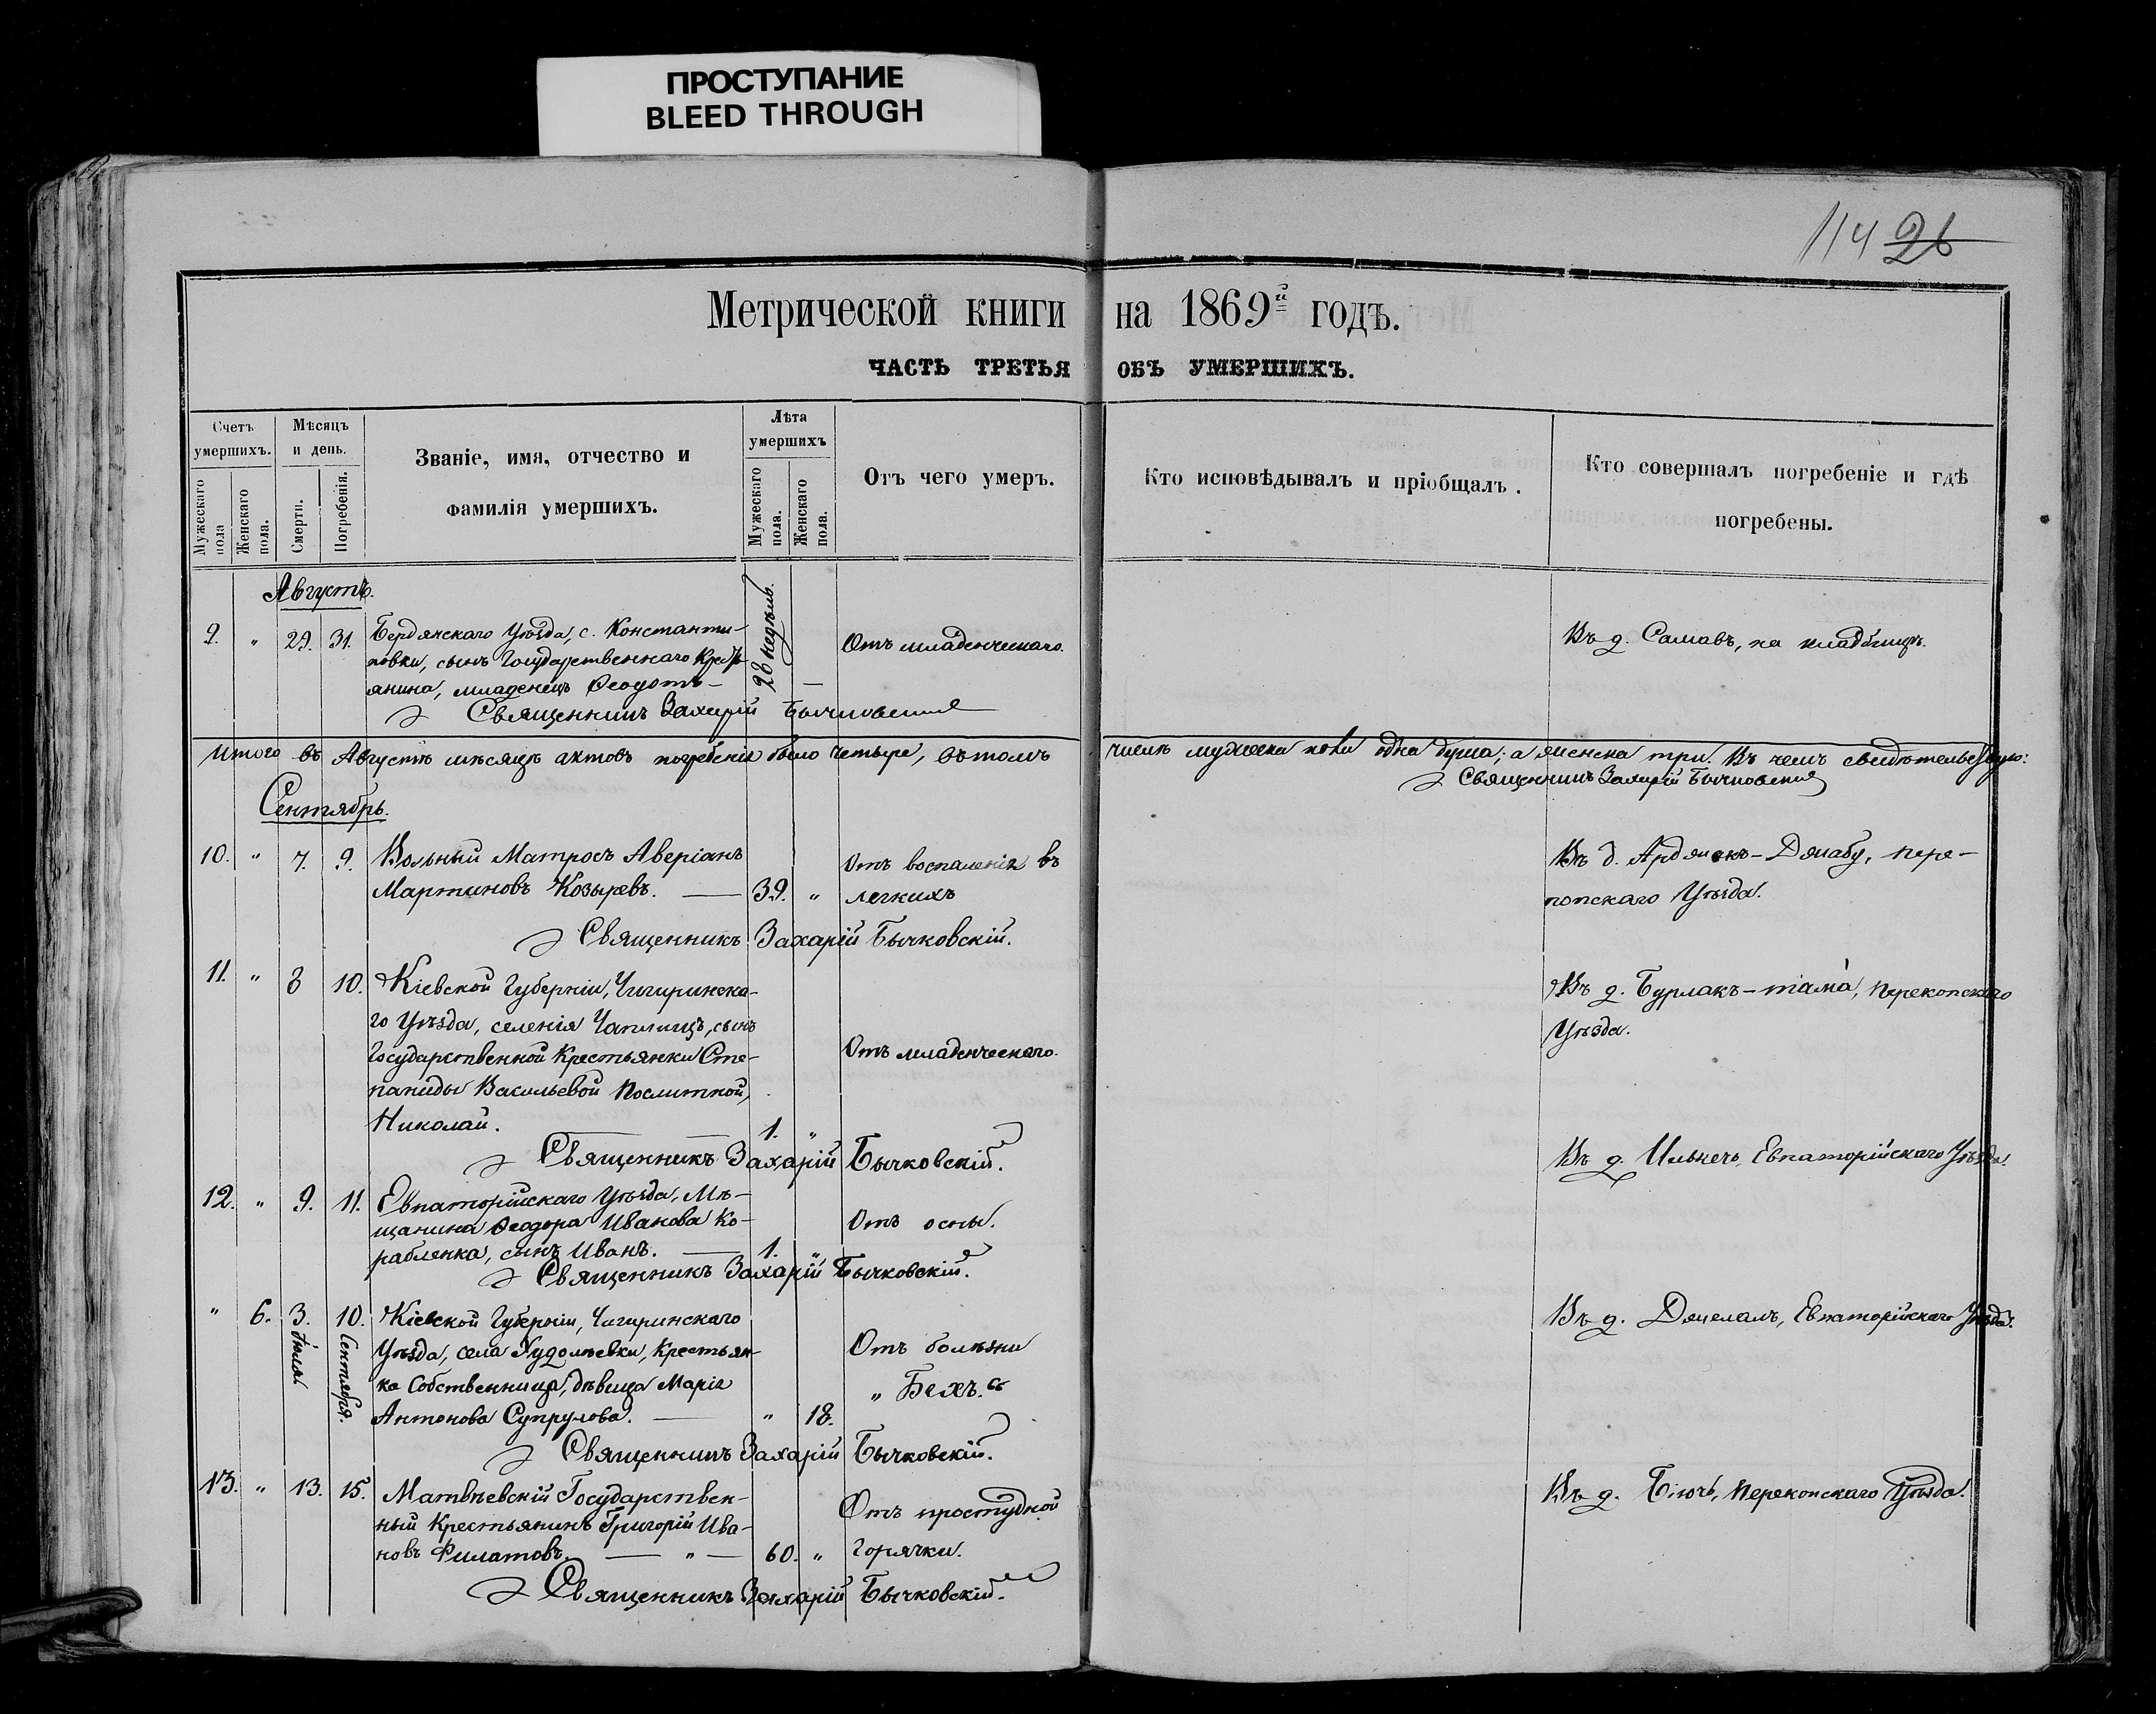 ПРОСТУПАНИЕ
BLEED THROUGH
114 26
Метрической книги на 1869й годъ.
ЧАСТЬ ТРЕТЬЯ ОБЪ УМЕРШИХЪ.
Счетъ умершихъ.
Мужескаго пола
Женскаго пола.
Мѣсяцъ и день.
Смерти.
Погребенія.
Званіе, имя, отчество и
фамилія умершихъ.
Лѣта умершихъ
Мужескаго пола.
Женскаго пола.
Отъ чего умеръ.
Кто исповѣдывалъ и пріобщалъ.
Кто совершалъ погребеніе и гдѣ
погребены.
Августъ.
9. " 29. 31. Бердянскаго Уѣзда, с. Константи-
новки, сынъ Государственнаго Кресть-
янина, младенецъ Ѳеодотъ — 28 недѣль. —
Отъ младенческаго.
Въ д. Самавъ, на кладбищѣ.
Священникъ Захарій Бычковскій
Итого въ Августѣ мѣсяцѣ актовъ погребенія было четыре, въ томъ числѣ мужеска пола одна душа; а женска три. Въ чемъ свидѣтельствую:
Священникъ Захарій Бычковскій
Сентябрь.
10. " 7. 9. Вольный Матросъ Аверіанъ
Мартиновъ Козыревъ. — 39. "
Отъ воспаленія въ
легкихъ
Въ д. -Джабу, Пере-
копскаго Уѣзда.
Священникъ Захарій Бычковскій.
11. " 8 10. Кіевской Губерніи, Чигиринска-
го Уѣзда, селенія Чаплищъ, сынъ
Государственной Крестьянки Сте-
паниды Васильевой
Николай. — 1. "
Отъ младенческаго.
Въ д. Бурлакъ-тама, Перекопскаго
Уѣзда.
Священникъ Захарій Бычковскій.
12. " 9. 11. Евпаторійскаго Уѣзда, Мѣ-
щанина Ѳеодора Иванова Ко-
рабленка, сынъ Иванъ. — 1. "
Отъ оспы.
Въ д. Евпаторійскаго Уѣзда.
Священникъ Захарій Бычковскій.
" 6. 3. 10. Сентября. Кіевской Губерніи, Чигиринскаго
Уѣзда, села Худолѣевки, Крестьян-
ка Собственница, дѣвица Марія
Антонова Супрулова. — " 18.
Отъ болѣзни
Въ д. Джелалъ, Евпаторійскаго Уѣзда.
Священникъ Захарій Бычковскій.
13. " 13. 15. Матвѣевскій Государствен-
ный Крестьянинъ Григорій Ива-
новъ Филатовъ. — " — 60. "
Отъ простудной
Горячки.
Въ д. Перекопскаго Уѣзда.
Священникъ Захарій Бычковскій.